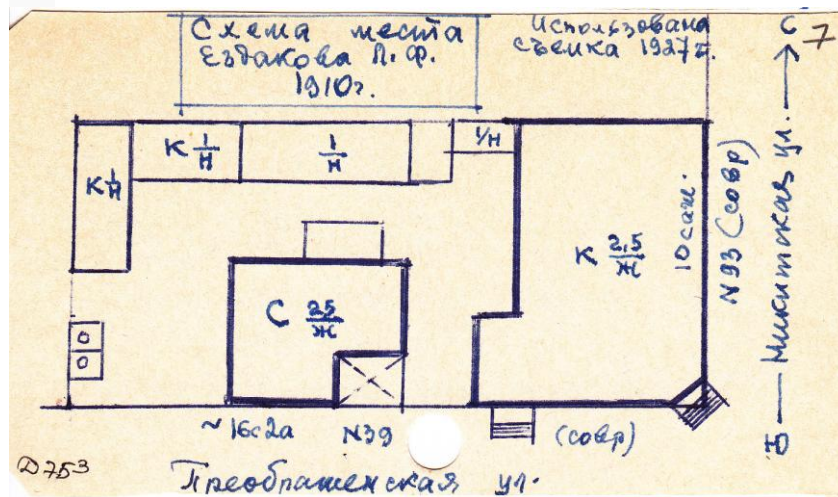 Схема места
Ездакова П. Ф.
1910г.
Использована
съемка 1927г.
С
7
К 1/Н
К 1/Н
1/Н
1/Н
К 2,5/Ж
10 саж.
N93 (совр)
Никитская ул.
Ю
С 2,5/Ж
~16с2а
N39
(совр)
Д753
Преображенская ул.